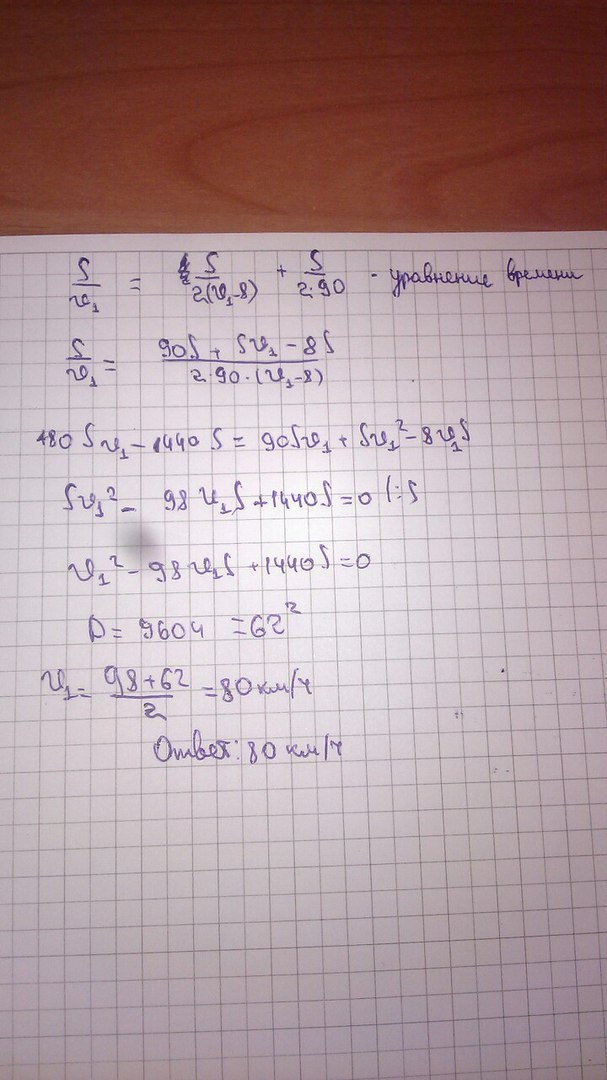 S/v₁ = S/2(v₁-8) + S/2·90 - уравнение времени
S/v₁ = 90S + Sv₁ - 8S/2·90·(v₁-8)
180Sv₁ - 1440S = 90Sv₁ + Sv₁² - 8v₁S
Sv₁² - 98v₁S + 1440S = 0 (:S
v₁² - 98v₁S + 1440S = 0
D = 9604 = 62²
v₁ = 98+62/2 = 80 км/ч
Ответ: 80 км/ч